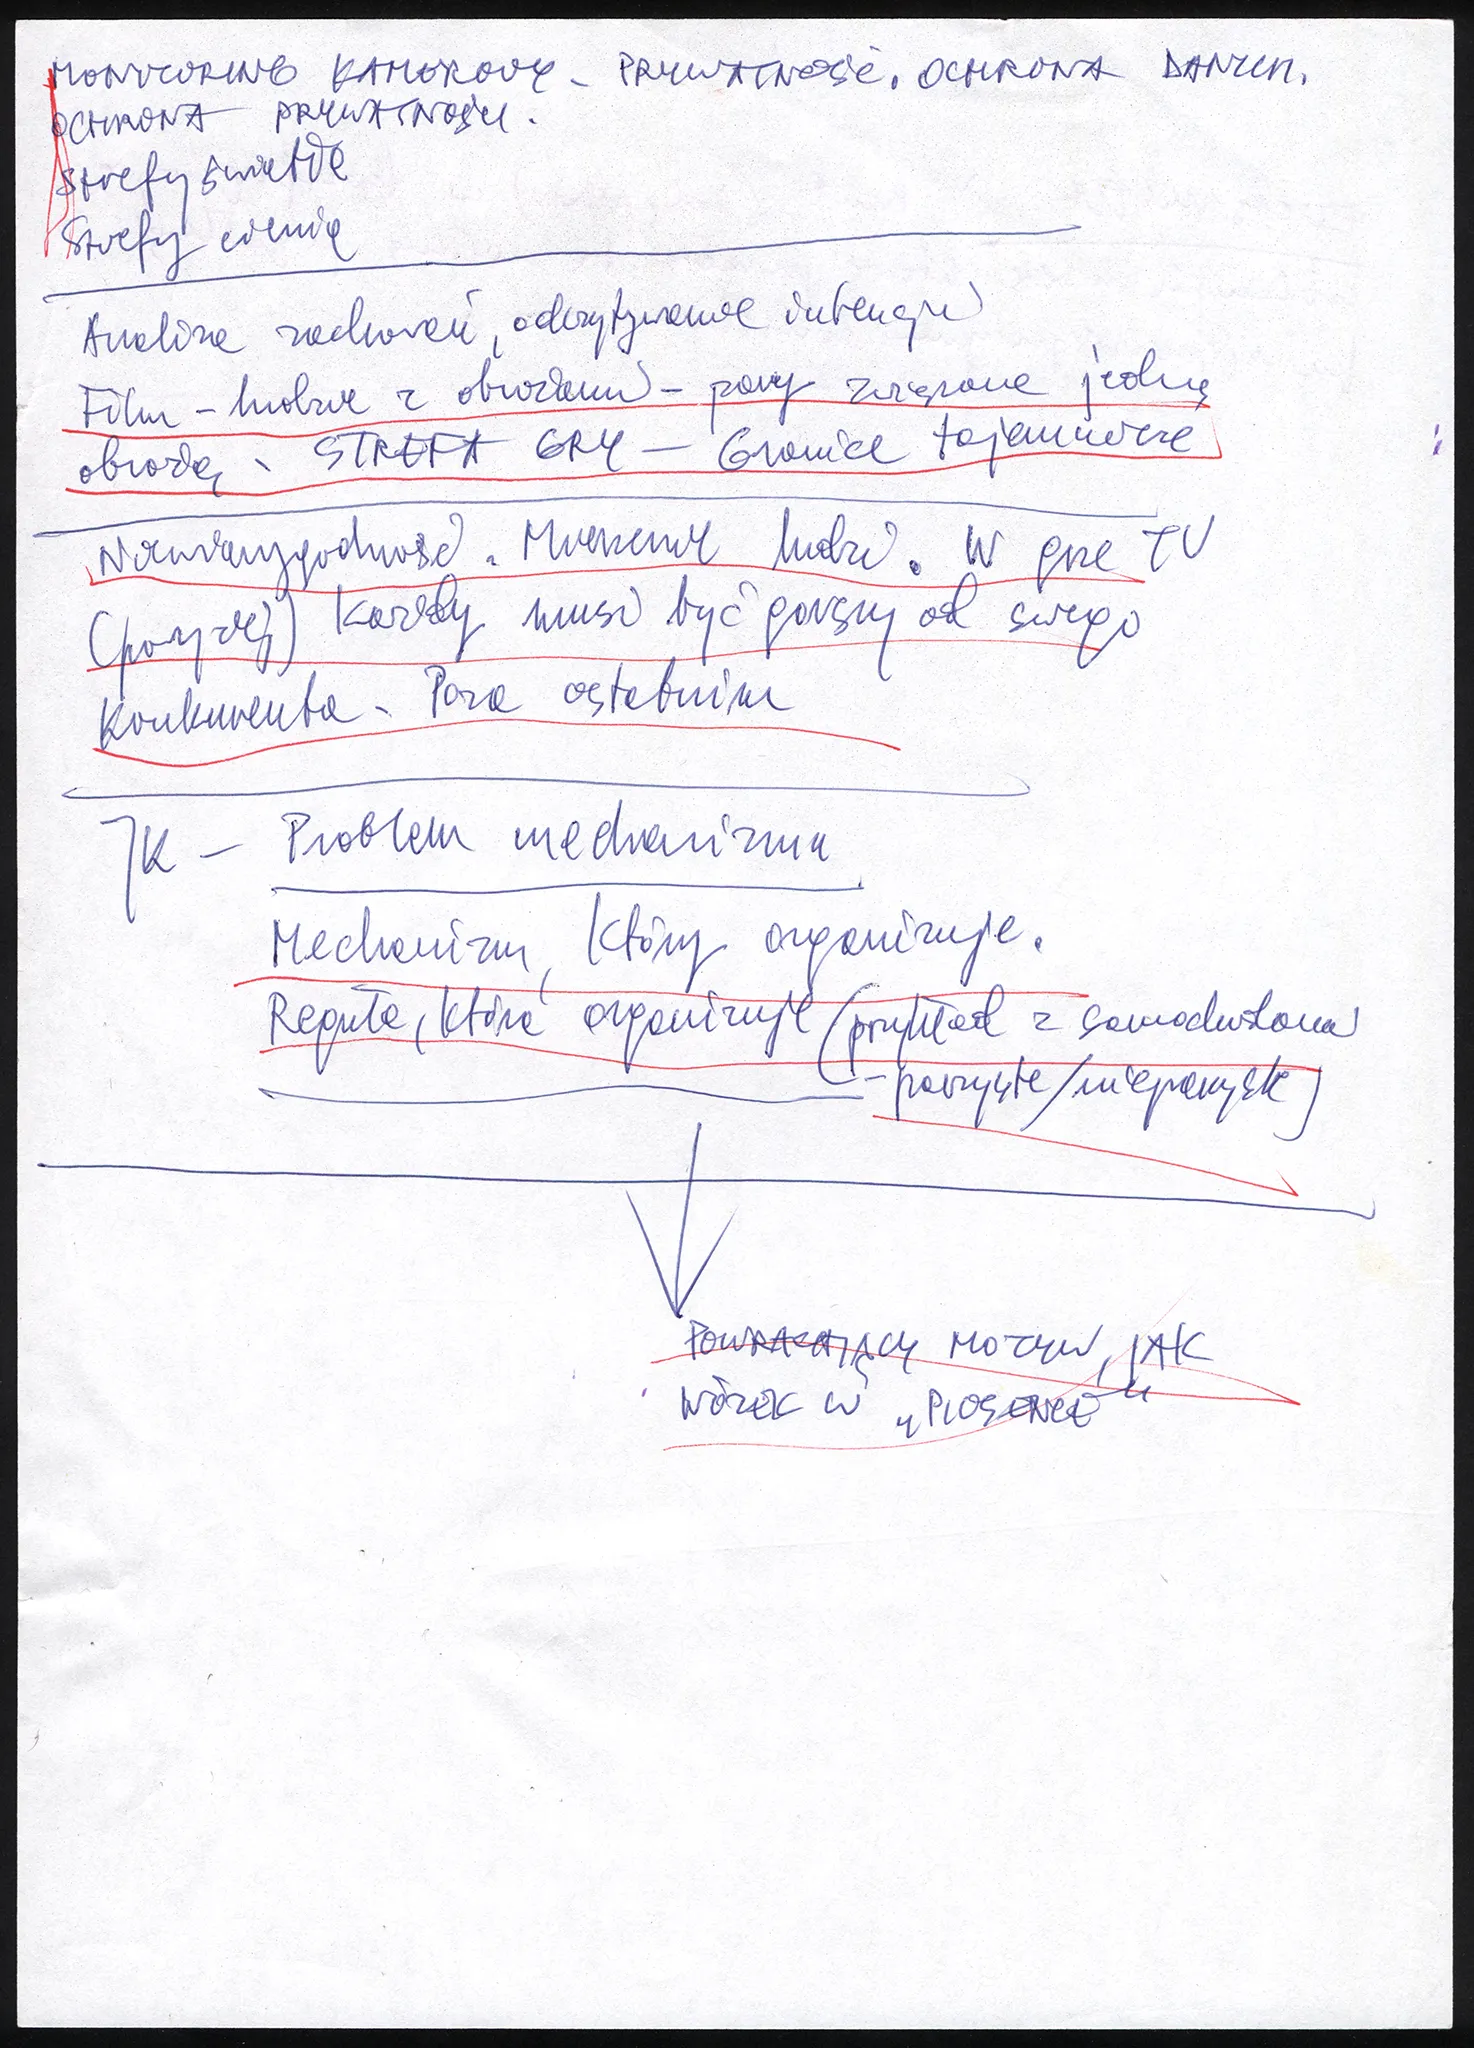 MONITORING KAMEROWY - PRYWATNOŚĆ. OCHRONA DANYCH.
OCHRONA PRYWATNOŚCI.
Strefy światła
Strefy cienia
Analiza zachowań, odczytywanie intencji
Film - ludzie z obrożami - pary związane jedną
obrożą. STREFA GRY - Granice tajemnicze
Niewiarygodność. Mierzenie ludzi. W grze TV
(powyżej) Każdy musi być gorszy od swego
Konkurenta. Poza ostatnim
JK - Problem mechanizmu
Mechanizm, który organizuje.
Reguła, która organizuje (przykład z samochodami
- parzyste/nieparzyste)
POWRACAJĄCY MOTYW, JAK
WÓZEK W „PIOSENCE"